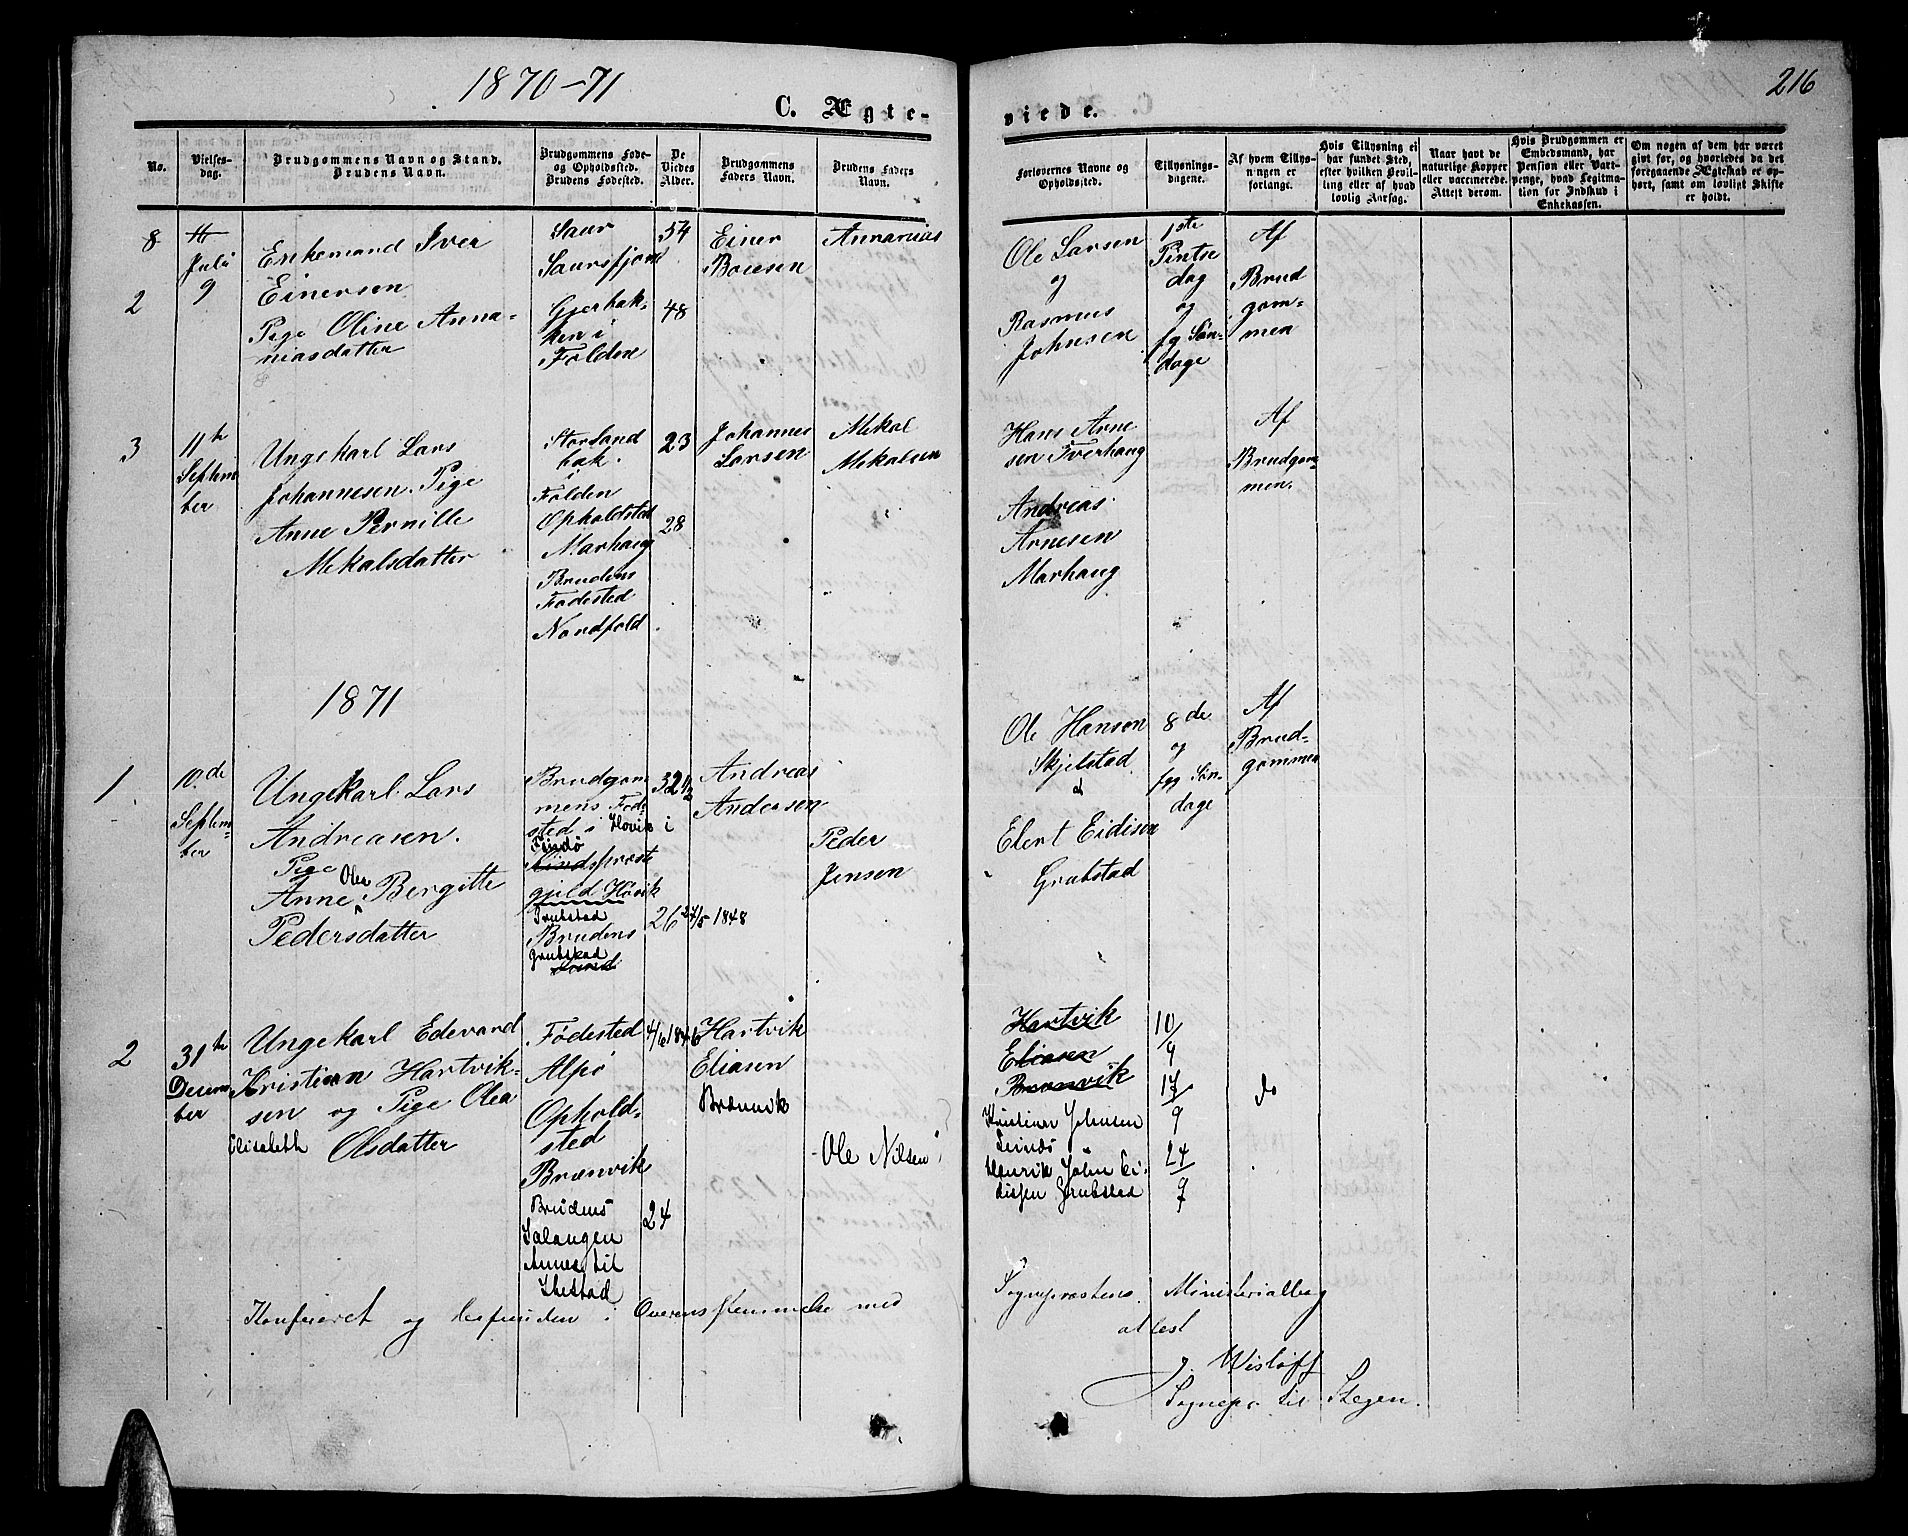 1870-71
216
C. Ægte-
viede.
No.
Vielses-
dag.
Brudgommens Navn og Stand.
Brudens Navn.
Brudgommens Føde-
og Opholdssted.
Brudens Fødested.
De
Viedes
Alder.
Brudgommens
Faders Navn.
Brudens Faders
Navn.
Forlovernes Navne og
Opholdssted.
Tillysnings-
dagene.
Af hvem Tillys-
ningen er
forlangt.
Hvis Tillysning ei
har fundet Sted,
efter hvilken Bevil-
ling eller af hvad
lovlig Aarsag.
Naar havt de
naturlige Kopper
eller vaccinerede.
Attest derom.
Hvis Brudgommen er
Embedsmand, har
Pension eller Vart-
penge, hvad Legitima-
tion for Indskud i
Enkekassen.
Om nogen af dem har været
gift før, og hvorledes da det
foregaaende Ægteskab er op-
hørt, samt om lovligt Skifte
er holdt.
8
2
Juli
9
Enkemand Iver
Einersen
Pige Oline Anna-
niasdatter
Saur
Saursfjord
Gjerbak-
ken i
Folden
54
48
Einer
Boiesen
Annanias
Ole Larsen
og
Rasmus
Johnsen
1ste
Pintse
dag
og
fg Søn-
dage
Af
Brud
gom-
men
3
11te
Septem
ber
Ungekarl Lars
Johannesen. Pige
Anne Pernille
Mekalsdatter
Storsand
bak.
Folden
Opholdsted
Marhaug
Brudens
Fødested
Nordfold
23
28
Johannes
Larsen
Mekal
Mekalsen
Hans Arne
sen Tverhaug
Andreas
Arnesen
Marhaug
Af
Brudgom-
men.
1871
1.
10.de
Septem-
ber
Ungekarl Lars
Andreasen.
Pige
Anne Olea Bergitte
Pedersdatter
Brudgom
mens Føde
sted i Hovik i
gjeld Hovik
Grubstad
Brudens
Grubstad
32 1/2
26 27/5 1848
Andreas
Andersen
Peder
Jensen
Ole Hansen
Skjelstad
Elert Eidisen
Grubstad
8de
og
fgg Søn-
dage
Af
Brud-
gommen
2
31te
Decem
ber
Ungekarl Edevard
Kristian Hartvik-
sen og Pige Olea
Elisabeth Olsdatter
Fødested
Alpø
Ophold-
sted
Brænvik
Brudens
Salangen
Annex til
Ibestad
4/6 1846
24
Hartvik
Eliasen
Brænvik
Ole Nilsen
Hartvik
Eliasen
Brænvik
Kristian Johnsen
Leinæs
Henrik John Ei-
disen Grubstad
10/9
17/9
24/9
do
Konfereret og befunden i Overensstemmelse med
Sognepræstens Ministerialbog
attest
J. Wisløff
Sognepr. til Stegen.